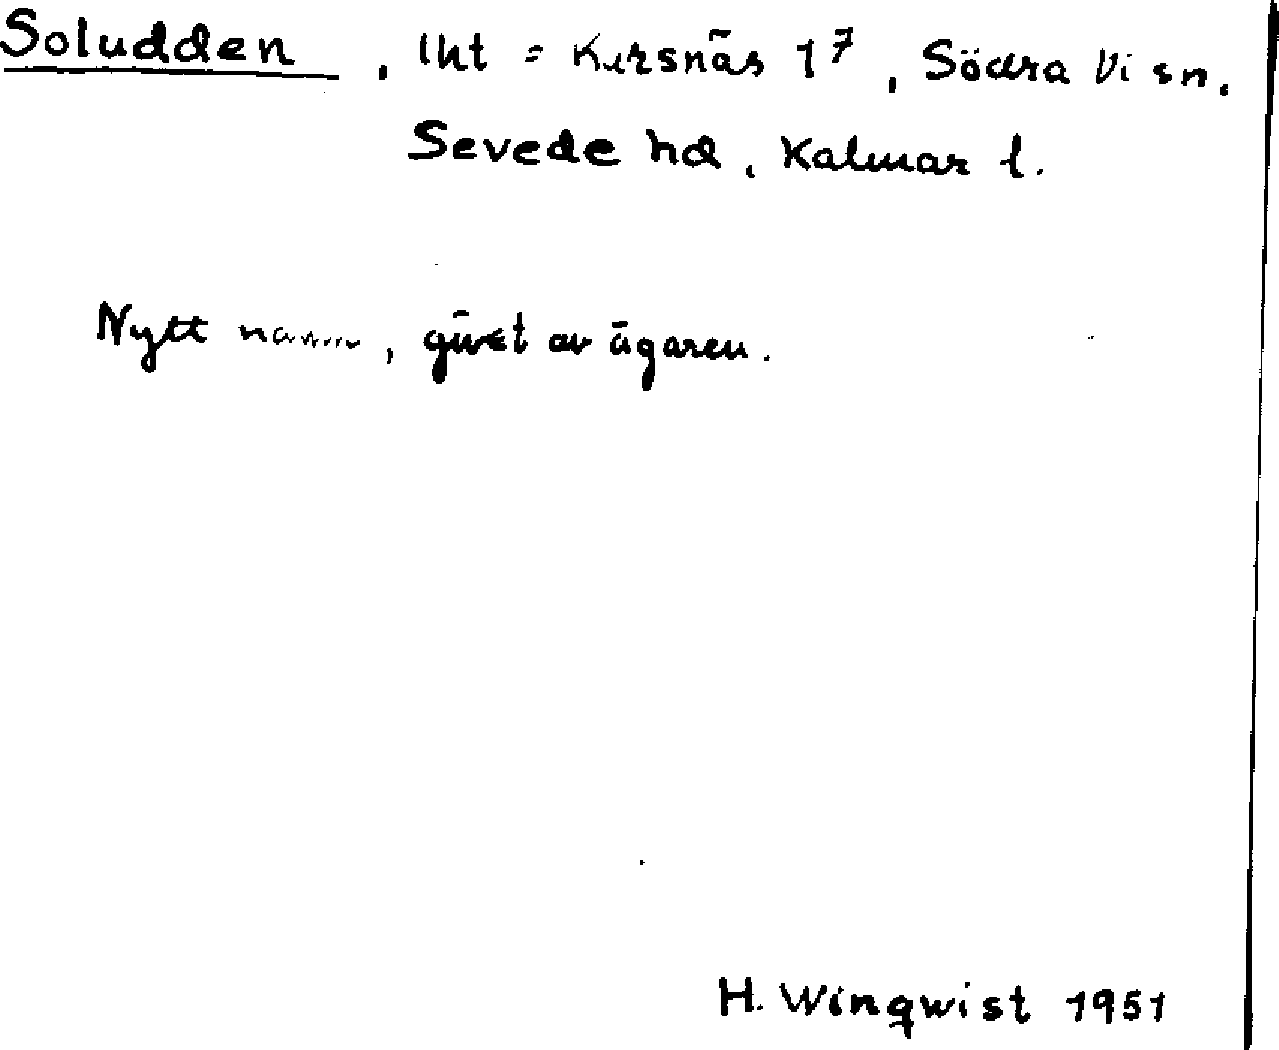 Soludden, lht = Kursnäs 1⁷, Södra Vi sn.
Sevede hd, Kalmar l.
Nytt namn, givet av ägaren.
H. Winqwist 1951